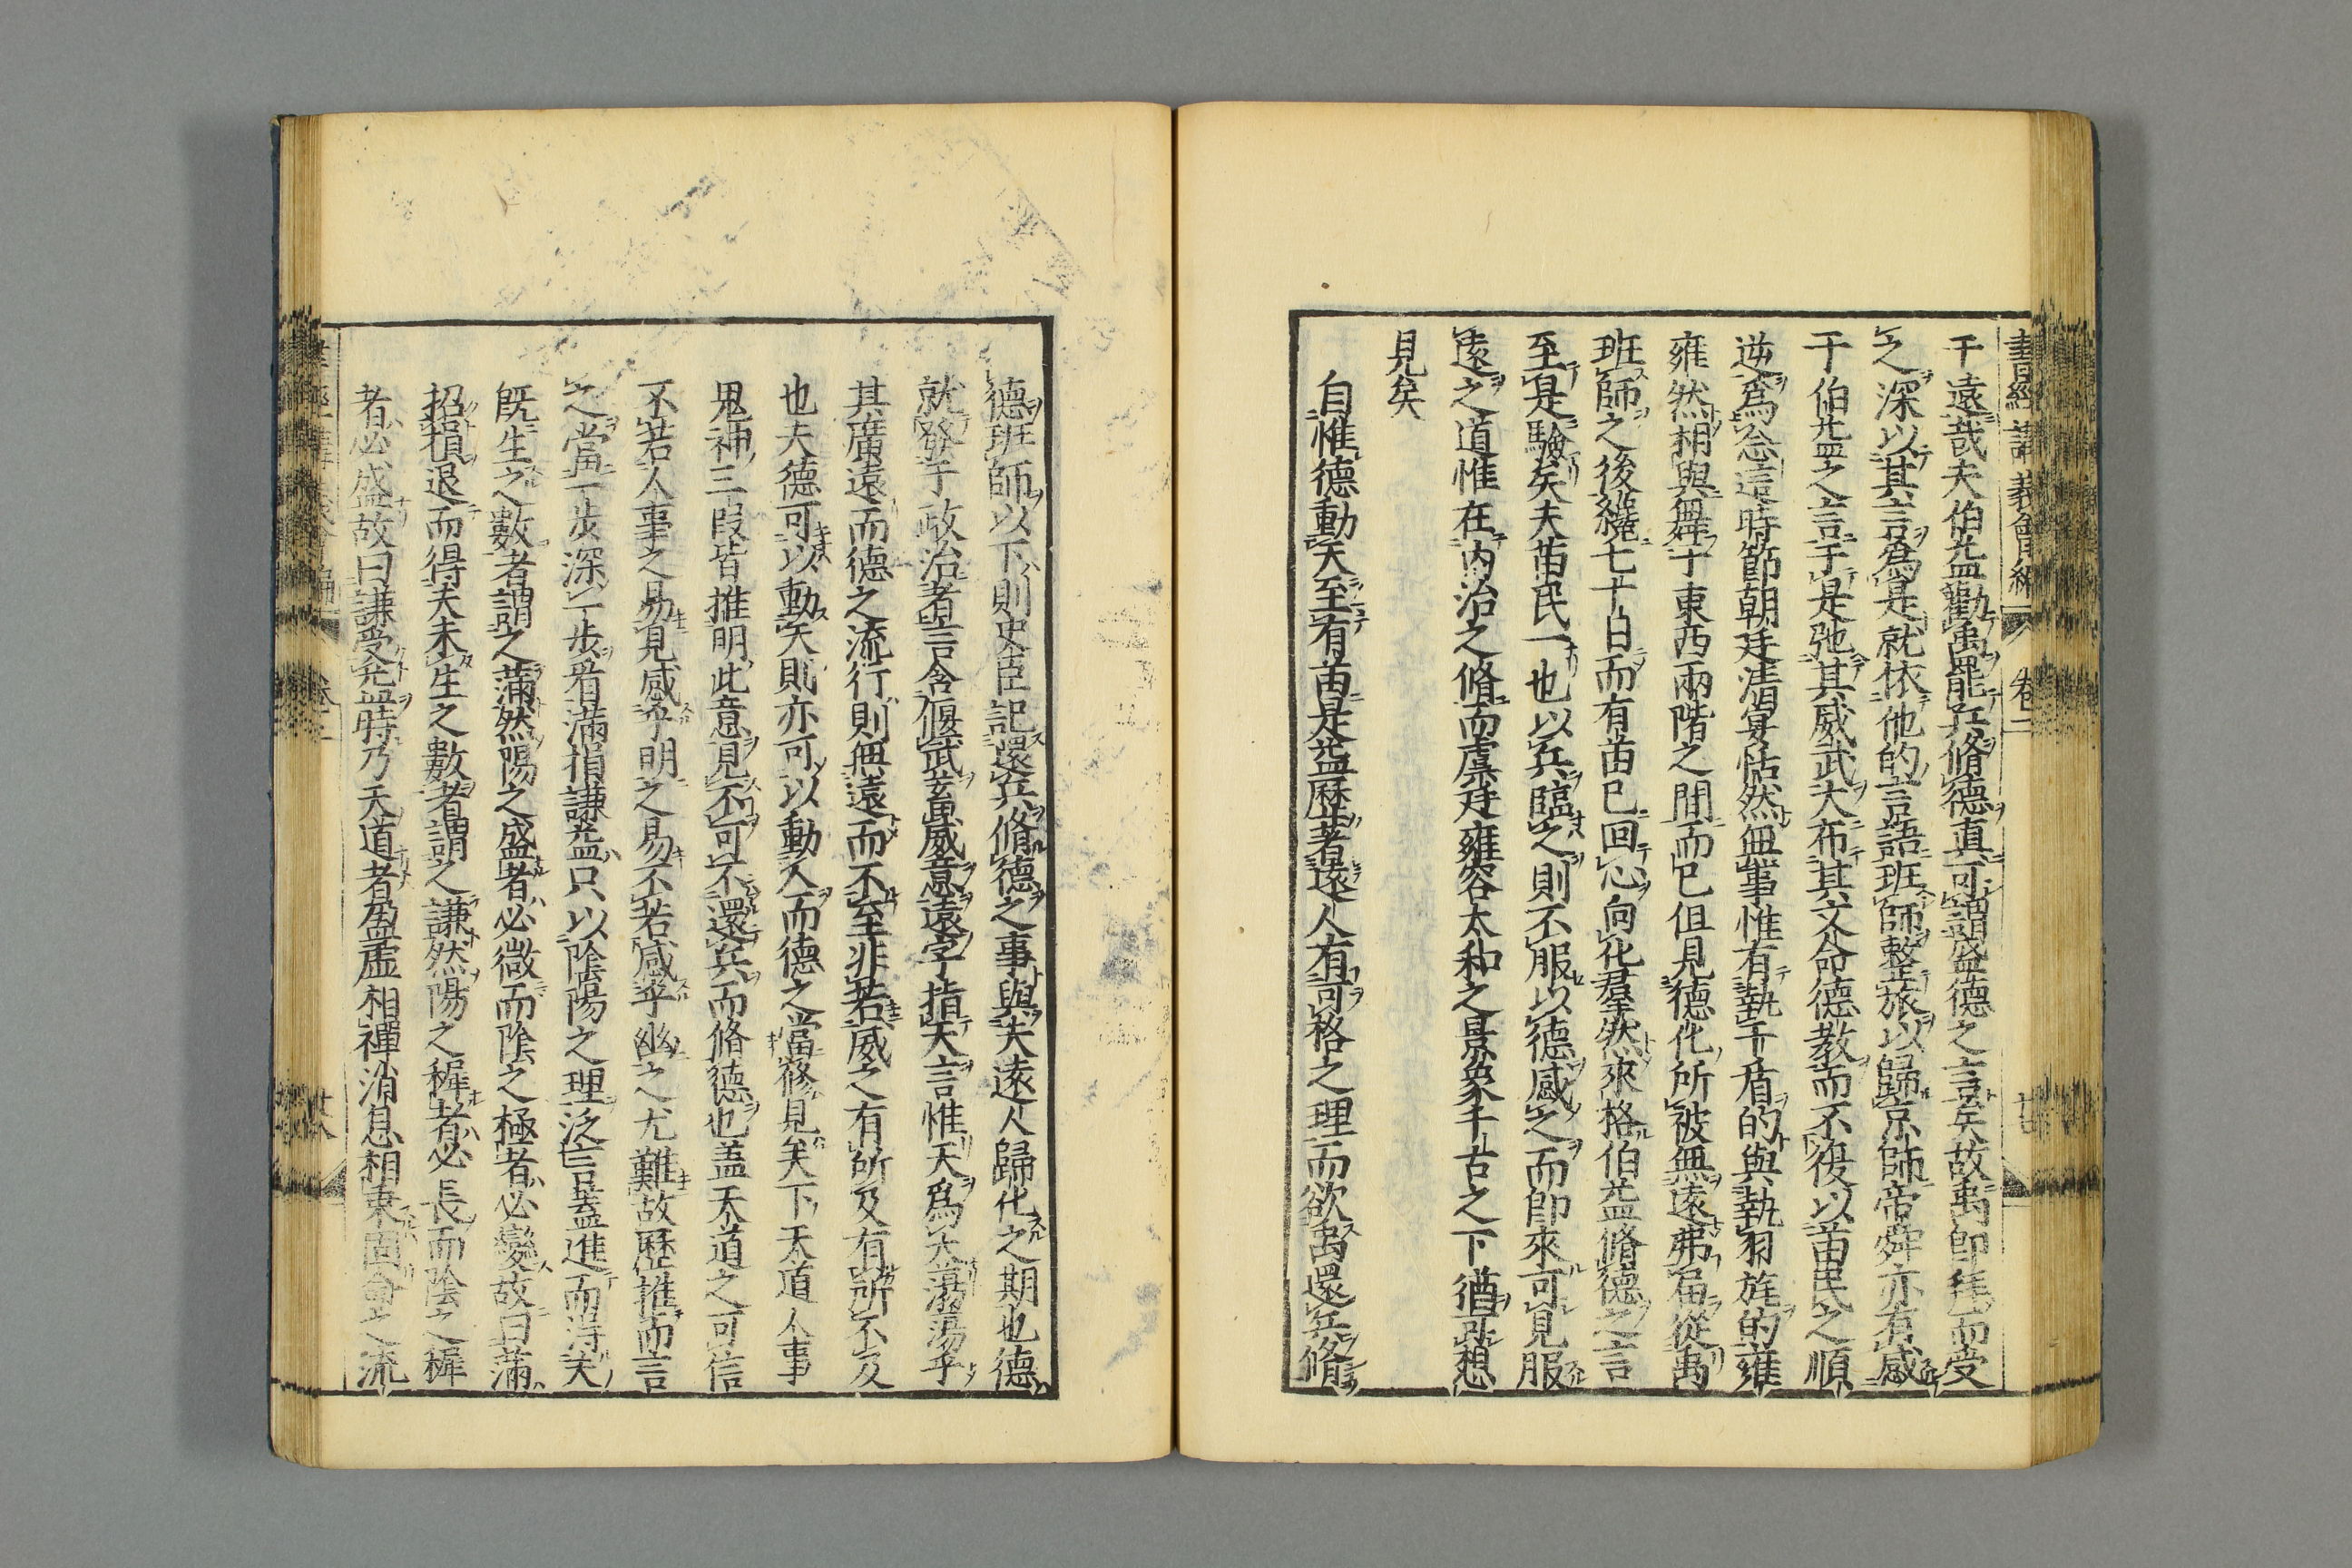 書經講義會編 卷二
于遠哉夫伯益勸禹罷兵脩德真可謂盛德之言矣故禹即拜而受
之深以其言爲是就依他的言語班師整旅以歸京師帝舜亦有感
于伯益之言于是弛其威武大布其文命德教而不復以苗民之順
逆爲念這時節朝廷清宴恬然無事惟有執干盾的與執羽旄的雍
雍然相與舞于東西兩階之間而已但見德化所被無遠弗屆從禹
班師之後纔七十日而有苗已回心向化羣然來格伯益脩德之言
至是驗矣夫苗民一也以兵臨之則不服以德感之而即來可見服
遠之道惟在內治之脩而虞廷雍容太和之景象千古之下猶可想
見矣
自惟德動天至有苗是益歷著遠人有可格之理而欲禹還兵脩
德班師以下則史臣記還兵脩德之事與夫遠人歸化之期也德
就發于政治者言含偃武荖畏威意遠字指天言惟天爲大蕩蕩乎
其廣遠而德之流行則無遠而不至非若威之有所及有所不及
也夫德可以動天則亦可以動人而德之當修見矣下天道人事
鬼神三段皆推明此意見不可不還兵而脩德也蓋天道之可信
不若人事之易見感乎明之易不若感乎幽之尤難故歷推而言
之當一步深一步看滿損謙益只以陰陽之理泛言蓋進而得夫
既生之數者謂之滿然陽之盛者必微而陰之極者必變故曰滿
招損退而得夫未生之數者謂之謙然陽之穉者必長而陰之穉
者必盛故曰謙受益時乃天道者盈虛相禪消息相乘固命之流
卷二
廿八